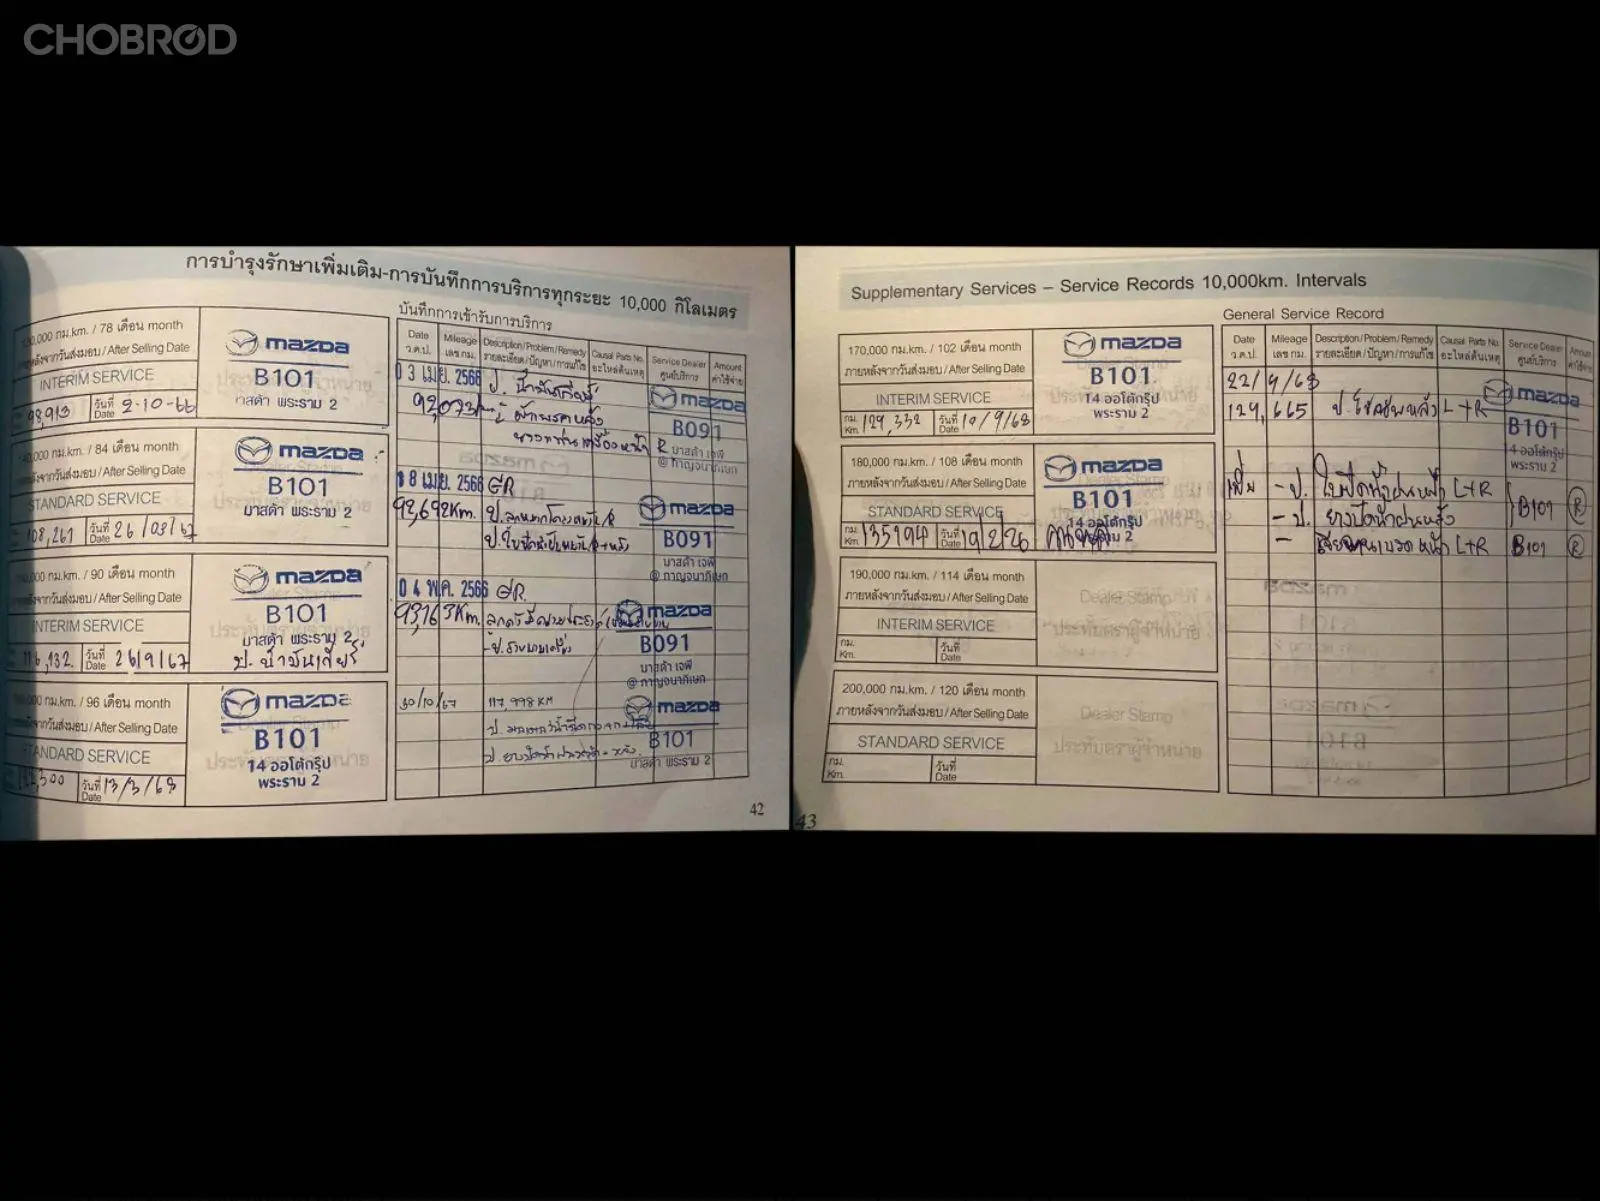 CHOBROD
การบำรุงรักษาเพิ่มเติม-การบันทึกการบริการทุกระยะ 10,000 กิโลเมตร
กม.km. / 78 เดือน month
ภายหลังจากวันส่งมอบ / After Selling Date
INTERIM SERVICE
98,913 วันที่ Date 2-10-66
mazda
B101
มาสด้า พระราม 2
กม.km. / 84 เดือน month
ภายหลังจากวันส่งมอบ / After Selling Date
STANDARD SERVICE
108,261 วันที่ Date 26/03/67
mazda
B101
มาสด้า พระราม 2
กม.km. / 90 เดือน month
ภายหลังจากวันส่งมอบ / After Selling Date
INTERIM SERVICE
116,132 วันที่ Date 26/9/67
mazda
B101
มาสด้า พระราม 2
ป. น้ำมันเกียร์
กม.km. / 96 เดือน month
ภายหลังจากวันส่งมอบ / After Selling Date
STANDARD SERVICE
วันที่ Date 13/3/68
mazda
B101
14 ออโต้กรุ๊ป
พระราม 2
บันทึกการเข้ารับการบริการ
Date ว.ด.ป. Mileage เลข กม. Description/Problem/Remedy รายละเอียด/ปัญหา/การแก้ไข Causal Parts No. อะไหล่ต้นเหตุ Service Dealer ศูนย์บริการ Amount ค่าใช้จ่าย
03 เม.ย. 2566
mazda
B091
มาสด้า เจพี
@ กาญจนาภิเษก
18 เม.ย. 2566
92,692 Km.
mazda
B091
มาสด้า เจพี
@ กาญจนาภิเษก
04 พ.ค. 2566
93,163 Km.
mazda
B091
มาสด้า เจพี
@ กาญจนาภิเษก
30/10/67 117,998 KM
mazda
B101
มาสด้า พระราม 2
42
Supplementary Services – Service Records 10,000km. Intervals
170,000 กม.km. / 102 เดือน month
ภายหลังจากวันส่งมอบ / After Selling Date
INTERIM SERVICE
กม. Km. 129,332 วันที่ Date 10/9/68
mazda
B101
14 ออโต้กรุ๊ป
พระราม 2
180,000 กม.km. / 108 เดือน month
ภายหลังจากวันส่งมอบ / After Selling Date
STANDARD SERVICE
กม. Km. 135194 วันที่ Date 19/2/26
mazda
B101
14 ออโต้กรุ๊ป
พระราม 2
190,000 กม.km. / 114 เดือน month
ภายหลังจากวันส่งมอบ / After Selling Date
INTERIM SERVICE
กม. Km. วันที่ Date
Dealer Stamp
ประทับตราผู้จำหน่าย
200,000 กม.km. / 120 เดือน month
ภายหลังจากวันส่งมอบ / After Selling Date
STANDARD SERVICE
กม. Km. วันที่ Date
Dealer Stamp
ประทับตราผู้จำหน่าย
General Service Record
Date ว.ด.ป. Mileage เลข กม. Description/Problem/Remedy รายละเอียด/ปัญหา/การแก้ไข Causal Parts No. อะไหล่ต้นเหตุ Service Dealer ศูนย์บริการ Amount ค่าใช้จ่าย
22/9/68
129,665 ป. โช๊คอัพหลัง L+R
mazda
B101
14 ออโต้กรุ๊ป
พระราม 2
- ป. ใบปัดน้ำฝนหน้า L+R
- ป. ยางปัดน้ำฝนหลัง B101 R
- เจียจานเบรคหน้า L+R B101 R
43